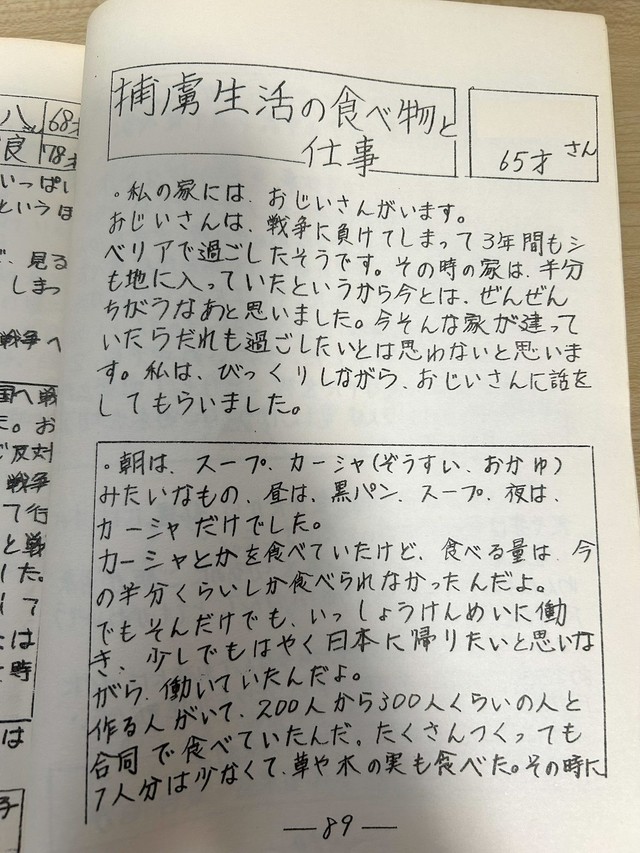 八
68才
良
78才
いっぱい
というほ
、見る
しまっ
戦争へ
国へ戦
た。お
ご反対
戦争
て行
と戦
した。
して
は
時
は
子
捕虜生活の食べ物と
仕事
65才 さん
・私の家には、おじいさんがいます。
おじいさんは、戦争に負けてしまって3年間もシ
ベリアで過ごしたそうです。その時の家は、半分
も地に入っていたというから今とは、ぜんぜん
ちがうなあと思いました。今そんな家が建って
いたらだれも過ごしたいとは思わないと思いま
す。私は、びっくりしながら、おじいさんに話を
してもらいました。
・朝は、スープ、カーシャ(ぞうすい、おかゆ)
みたいなもの、昼は、黒パン、スープ、夜は、
カーシャだけでした。
カーシャとかを食べていたけど、食べる量は、今
の半分くらいしか食べられなかったんだよ。
でもそんだけでも、いっしょうけんめいに働
き、少しでもはやく日本に帰りたいと思いな
がら、働いていたんだよ。
作る人がいて、200人から300人くらいの人と
合同で食べていたんだ。たくさんつくっても
1人分は少なくて、草や木の実も食べた。その時に
—89—